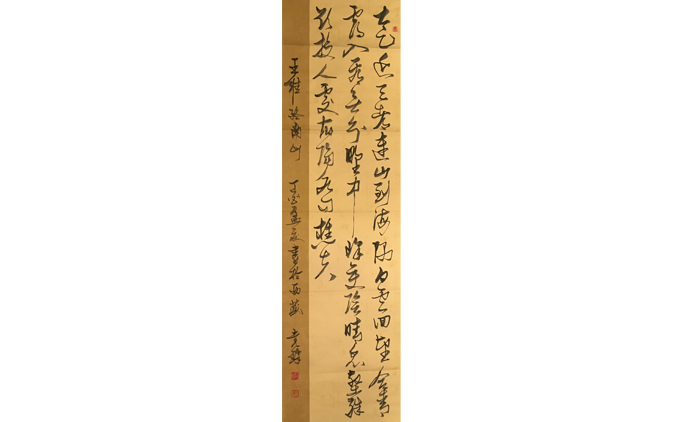 太乙近天都連山到海隅白雲回望合青
靄入看無分野中峰變陰晴眾壑殊
欲投人處宿隔水問樵夫
王維終南山 丁亥孟夏書於西藏